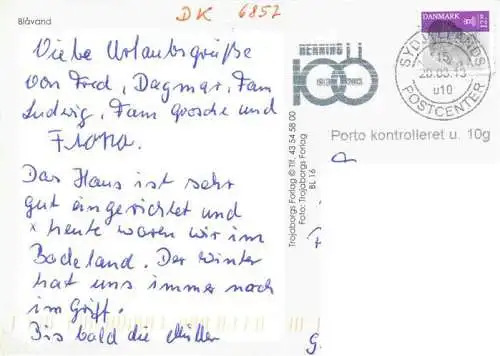 Blåvand
DK 6857
Viele Urlaubsgrüße
von Fred, Dagmar, Fam
Ludwig, Fam Grosche und
Flora.
Das Haus ist sehr
gut eingerichtet und
x heute waren wir im
Badeland. Der Winter
hat uns immer noch
im Griff.
Bis bald die Müller
Trojaborgs Forlag © Tlf. 43 54 58 00
Foto: Trojaborgs Forlag
BL 16
HERNING
100
1913 2013
DANMARK
SYDJYLLANDS
15
20.03.13
u10
POSTCENTER
Porto kontrolleret u. 10g
G